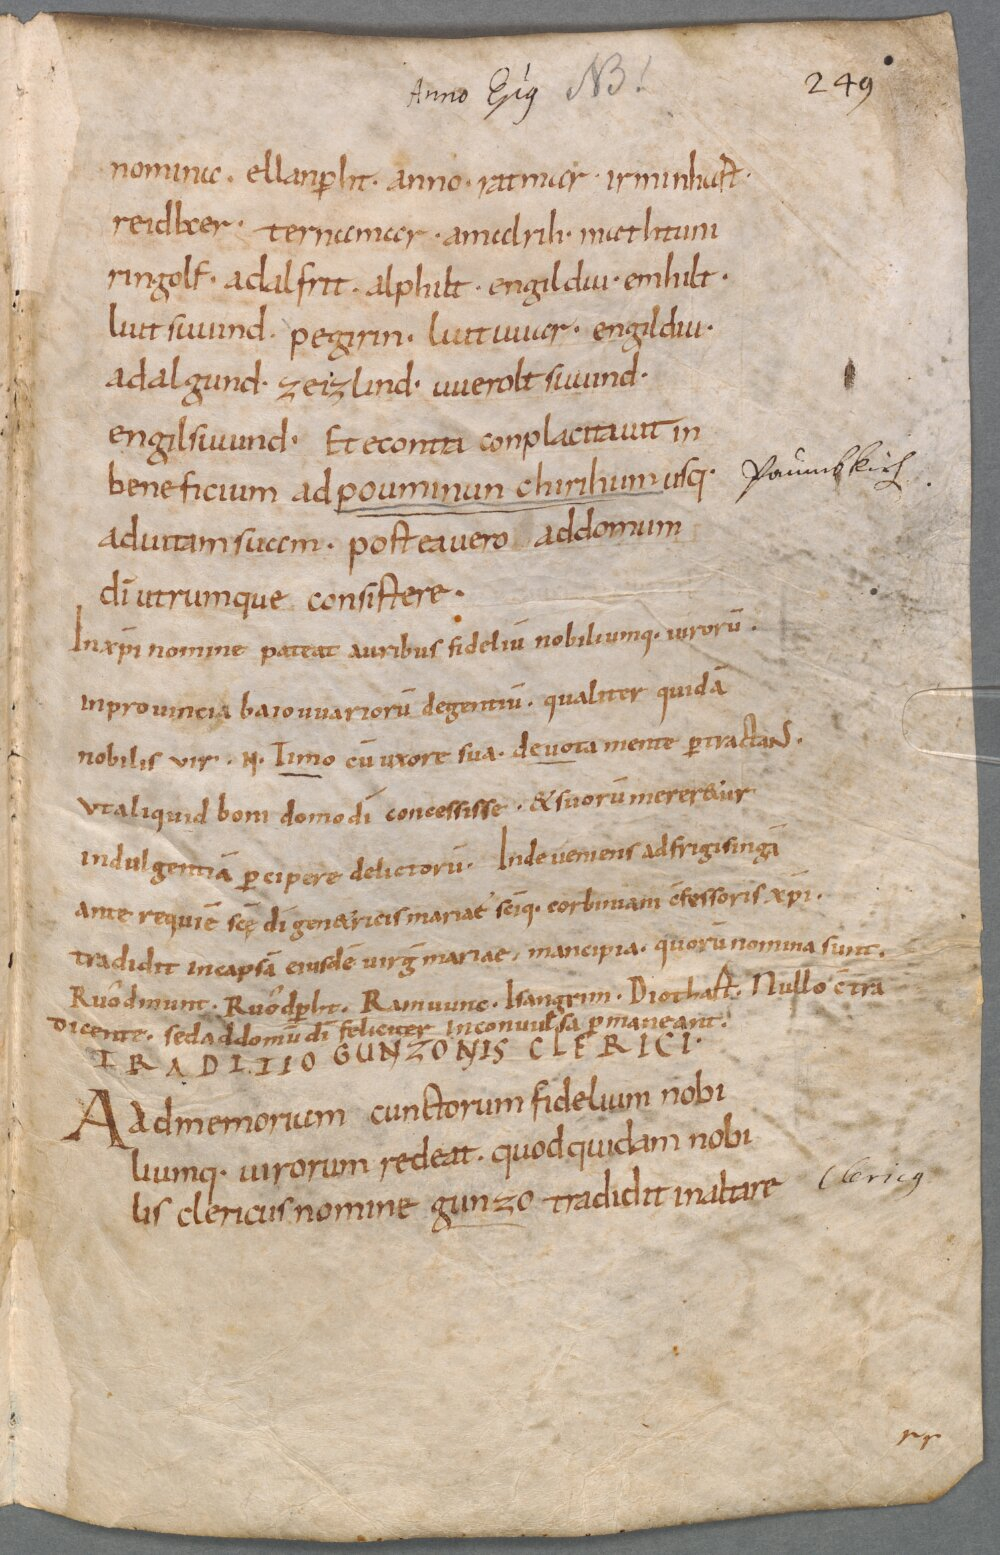 Anno Epg NB! 249
nomina. ellanp̄ht. anno. ratmar. irminhast.
reidker. ternamar. amadrih. mathtuni
ringolf. adalfrit. alphilt. engildiu. emhilt.
liutsuuind. pegirin. liutuuar. engildiu.
adalgund. zeizlind. uueroltsuuind.
engilsuuind. Et econtra conplacitauit in
beneficium ad pouminun chirihum usq.
ad uitam suam. postea uero ad domum
dī utrumque consistere.
In xp̄i nomine pateat auribus fideliū nobiliumq. uirorū.
in prouincia baiouuariorū degentiū. qualiter quidā
nobilis vir. N. Timo cū uxore sua. deuota mente ꝑtractaNS.
Vt aliquid boni domo dī concessisse. & suorū mereretur
indulgentiā ꝑcipere delictorū. Inde ueniens ad frigisingā
ante requiē scę dī genetricis mariae sc̄iq. corbiniani c̄fessoris xp̄i.
tradidit in capsā eiusdē uirḡ mariae, mancipia. quorū nomina sunt.
Ruodmunt. Ruodp̄ht. Ramuunc. Isangrim. Diothast. Nullo c̄tra
dicente. sed ad domū dī feliciter inconuulsa ꝑmaneant.
TRADITIO GUNZONIS CLERICI.
Ad memoriam cunctorum fidelium nobi
liumq. uirorum redeat. quod quidam nobi
lis clericus nomine gunzo tradidit in altare
Paumbkirch
Clericq
rr